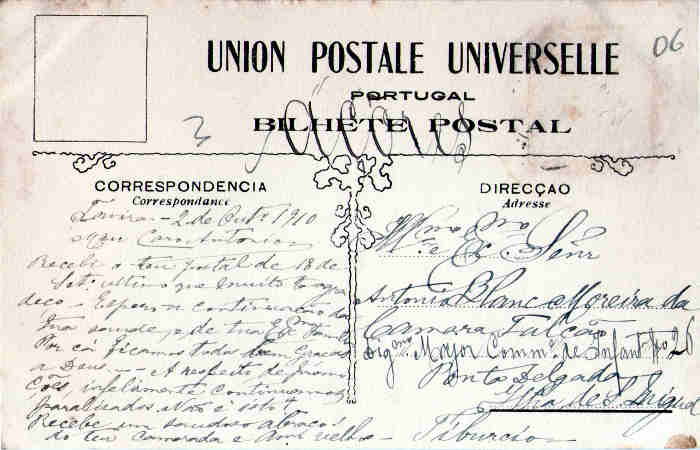 UNION POSTALE UNIVERSELLE
06
PORTUGAL
BILHETE POSTAL
3
Açores
CORRESPONDENCIA
Correspondance
Tavira - 2 de Out. 1910
Meu Caro Antonio
Recebi o teu postal de 18 de
Set. ultimo que muito te agra
deço - Espero a continuação da
tua saude, e de tua Exma Familia
Por cá ficamos todos bem Graças
a Deus. - A respeito de promo
ções, infelizmente continuamos
paralisados
Recebe um saudoso abraço
do teu camarada e amº velho -
Tiburcio
DIRECÇAO
Adresse
Illmo Exmo
Senr
Antonio Blanc Moreira da
Camara Falcão
Major Comm. de Infant nº 26
Ponta Delgada
Ilha de S. Miguel